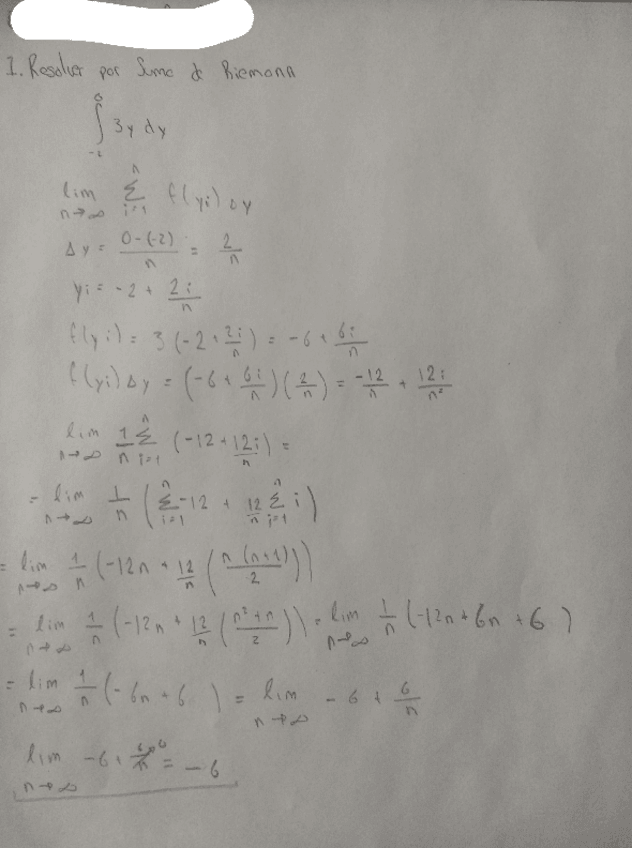 1. Resolver por Suma de Riemann
∫_{-2}^{0} 3y dy
lim n→∞ Σ_{i=1}^{n} f(yi) Δy
Δy = (0-(-2))/n = 2/n
yi = -2 + 2i/n
f(yi) = 3(-2 + 2i/n) = -6 + 6i/n
f(yi) Δy = (-6 + 6i/n)(2/n) = -12/n + 12i/n²
lim n→∞ 1/n Σ_{i=1}^{n} (-12 + 12i/n) =
= lim n→∞ 1/n (Σ_{i=1}^{n} -12 + 12/n Σ_{i=1}^{n} i)
= lim n→∞ 1/n (-12n + 12/n (n(n+1)/2))
= lim n→∞ 1/n (-12n + 12/n ((n²+n)/2)) = lim n→∞ 1/n (-12n + 6n + 6)
= lim n→∞ 1/n (-6n + 6) = lim n→∞ -6 + 6/n
lim n→∞ -6 + 6/n⁰ = -6